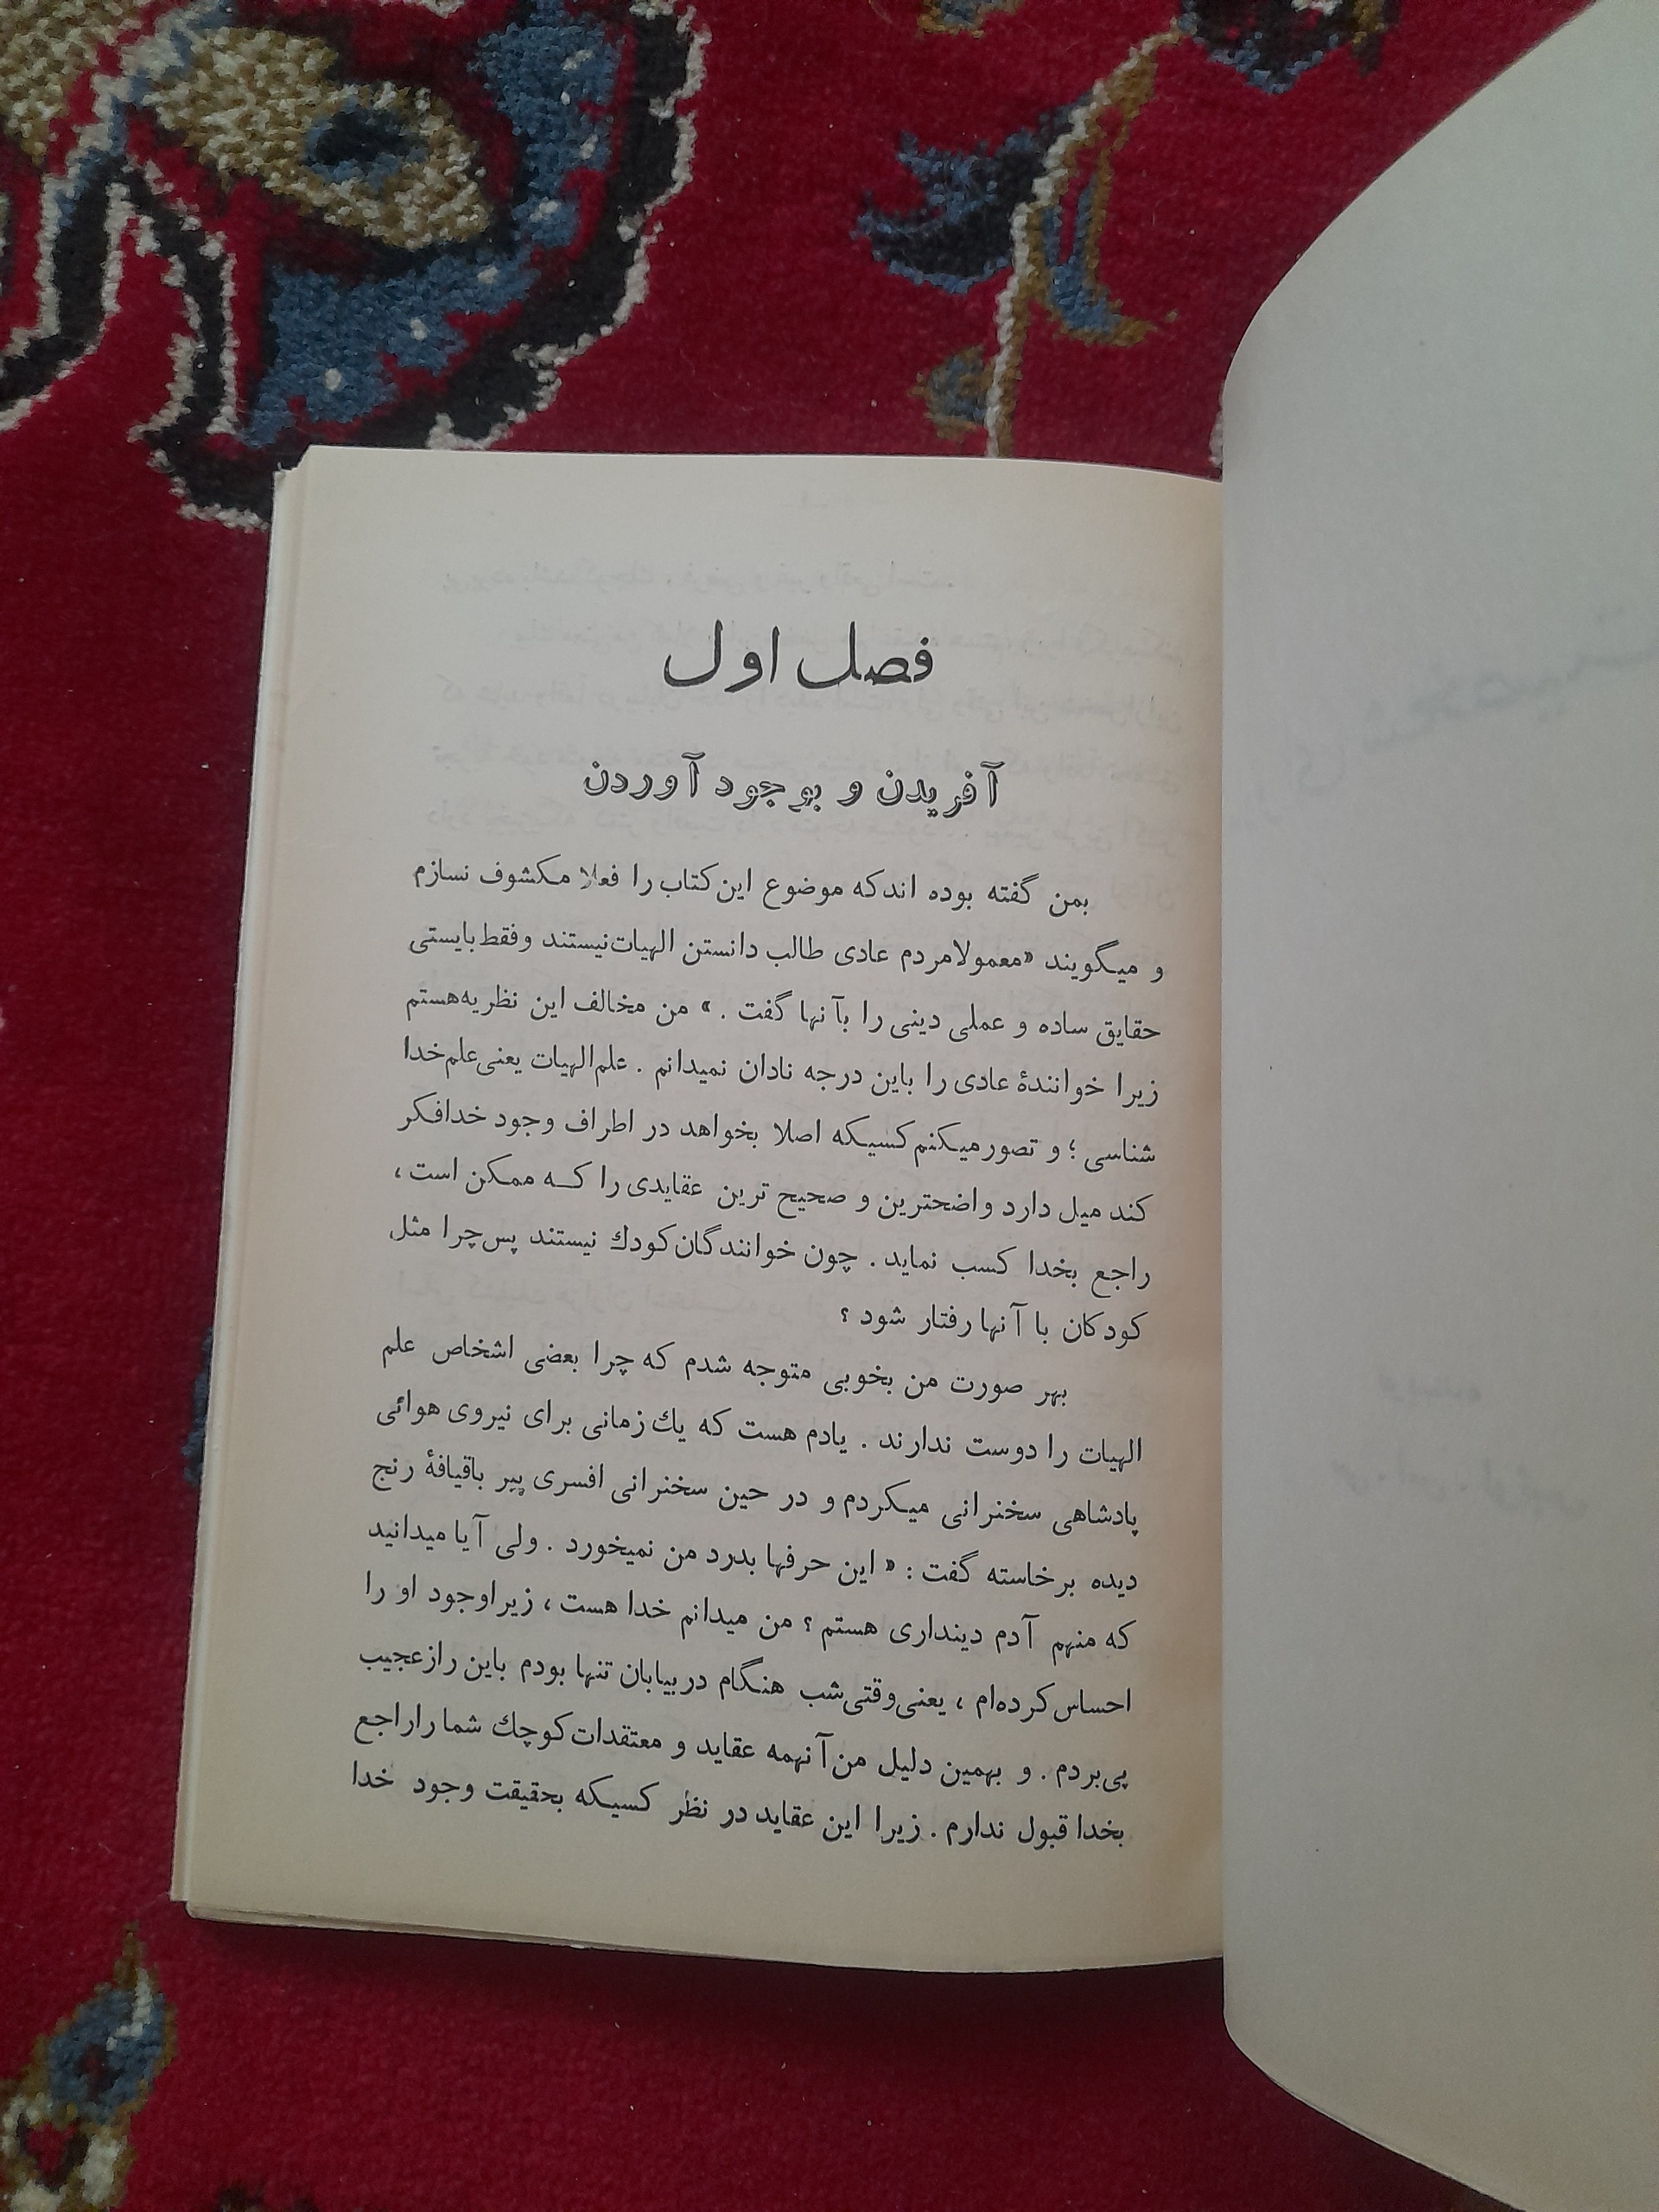 فصل اول
آفریدن و بوجود آوردن
بمن گفته بوده اندکه موضوع این کتاب را فعلا مکشوف نسازم
و میگویند «معمولا مردم عادی طالب دانستن الهیات نیستند و فقط بایستی
حقایق ساده و عملی دینی را بآنها گفت . » من مخالف این نظریه هستم
زیرا خوانندۀ عادی را باین درجه نادان نمیدانم . علم الهیات یعنی علم خدا
شناسی ؛ و تصور میکنم کسیکه اصلا بخواهد در اطراف وجود خدا فکر
کند میل دارد واضحترین و صحیح ترین عقایدی را کـه ممکن است ،
راجع بخدا کسب نماید . چون خوانندگان کودك نیستند پس چرا مثل
کودکان با آنها رفتار شود ؟
بهر صورت من بخوبی متوجه شدم که چرا بعضی اشخاص علم
الهیات را دوست ندارند . یادم هست که یك زمانی برای نیروی هوائی
پادشاهی سخنرانی میکردم و در حین سخنرانی افسری پیر باقیافۀ رنج
دیده برخاسته گفت : « این حرفها بدرد من نمیخورد . ولی آیا میدانید
که منهم آدم دینداری هستم ؟ من میدانم خدا هست ، زیرا وجود او را
احساس کرده‌ام ، یعنی وقتی شب هنگام در بیابان تنها بودم باین راز عجیب
پی بردم . و بهمین دلیل من آنهمه عقاید و معتقدات کوچك شما را راجع
بخدا قبول ندارم . زیرا این عقاید در نظر کسیکه بحقیقت وجود خدا